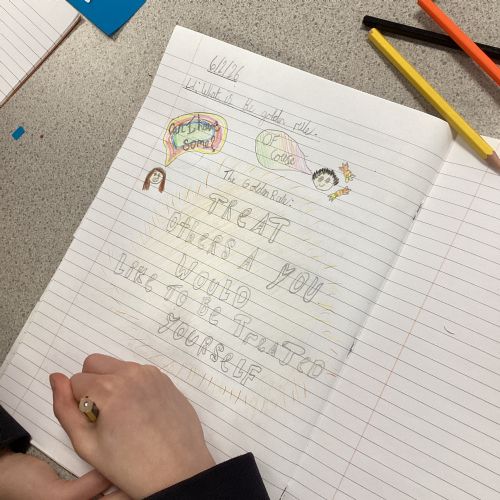 6/2/26
LI: What is the golden rule.
Can I have
some?
OF
Coise
The Golden Rule:
TREAT
OTHERS A YOU
WOULD
LIKE TO BE TREATED
YOURSELF